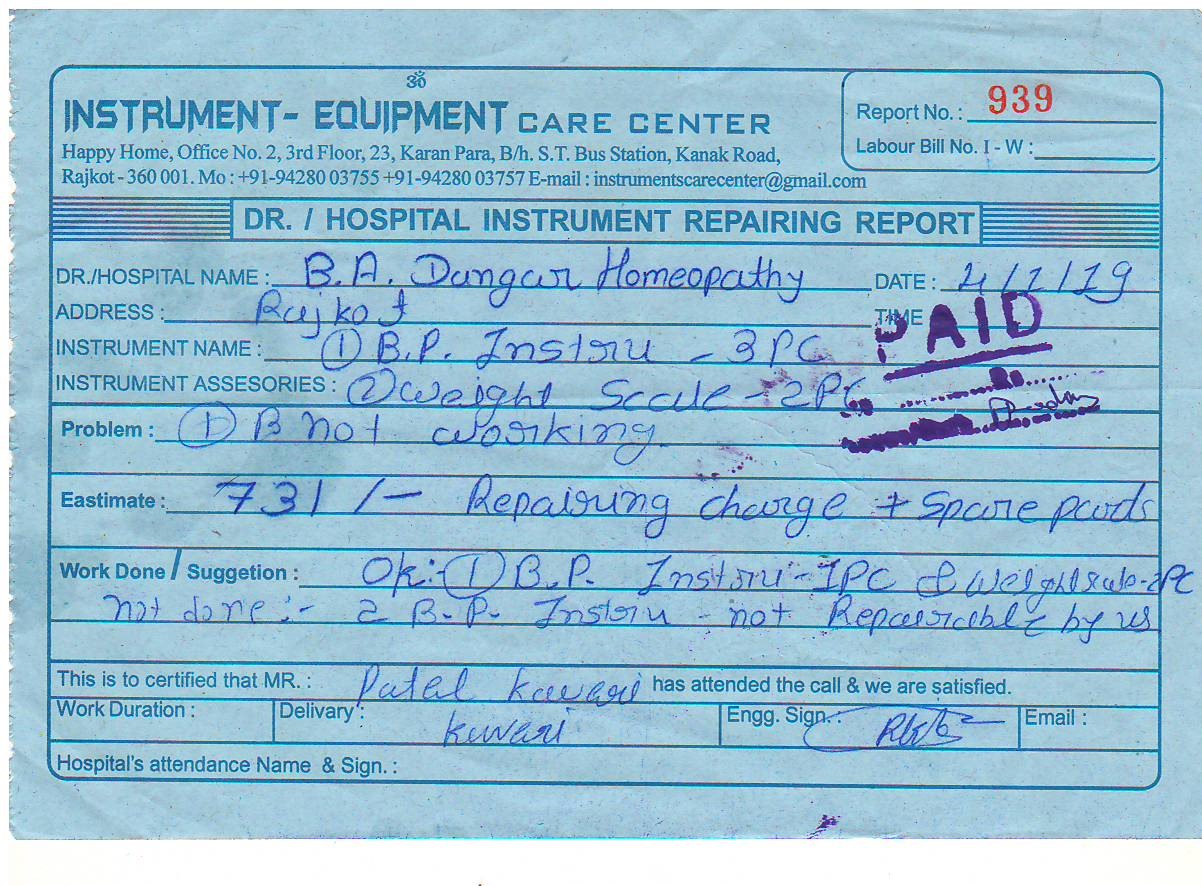 ॐ
INSTRUMENT- EQUIPMENT CARE CENTER
Happy Home, Office No. 2, 3rd Floor, 23, Karan Para, B/h. S.T. Bus Station, Kanak Road,
Rajkot - 360 001. Mo : +91-94280 03755 +91-94280 03757 E-mail : instrumentscarecenter@gmail.com
Report No. : 939
Labour Bill No. I - W :
DR. / HOSPITAL INSTRUMENT REPAIRING REPORT
DR./HOSPITAL NAME : B.A. Dangar Homeopathy DATE : 4/1/19
ADDRESS : Rajkot TIME
PAID
INSTRUMENT NAME : ① B.P. Instru - 3 PC
INSTRUMENT ASSESORIES : ② Weight Scale - 2 PC
Problem : ① B not working.
Eastimate : 731 /- Repairing charge + Spare parts
Work Done / Suggetion : Ok:- ① B.P. Instru - 1PC & weight scale - 2PC
not done :- 2 B.P. Instru - not Repairable by us
This is to certified that MR. : Patel Kuvari has attended the call & we are satisfied.
Work Duration : Delivary : Kuvari Engg. Sign. : Email :
Hospital's attendance Name & Sign. :